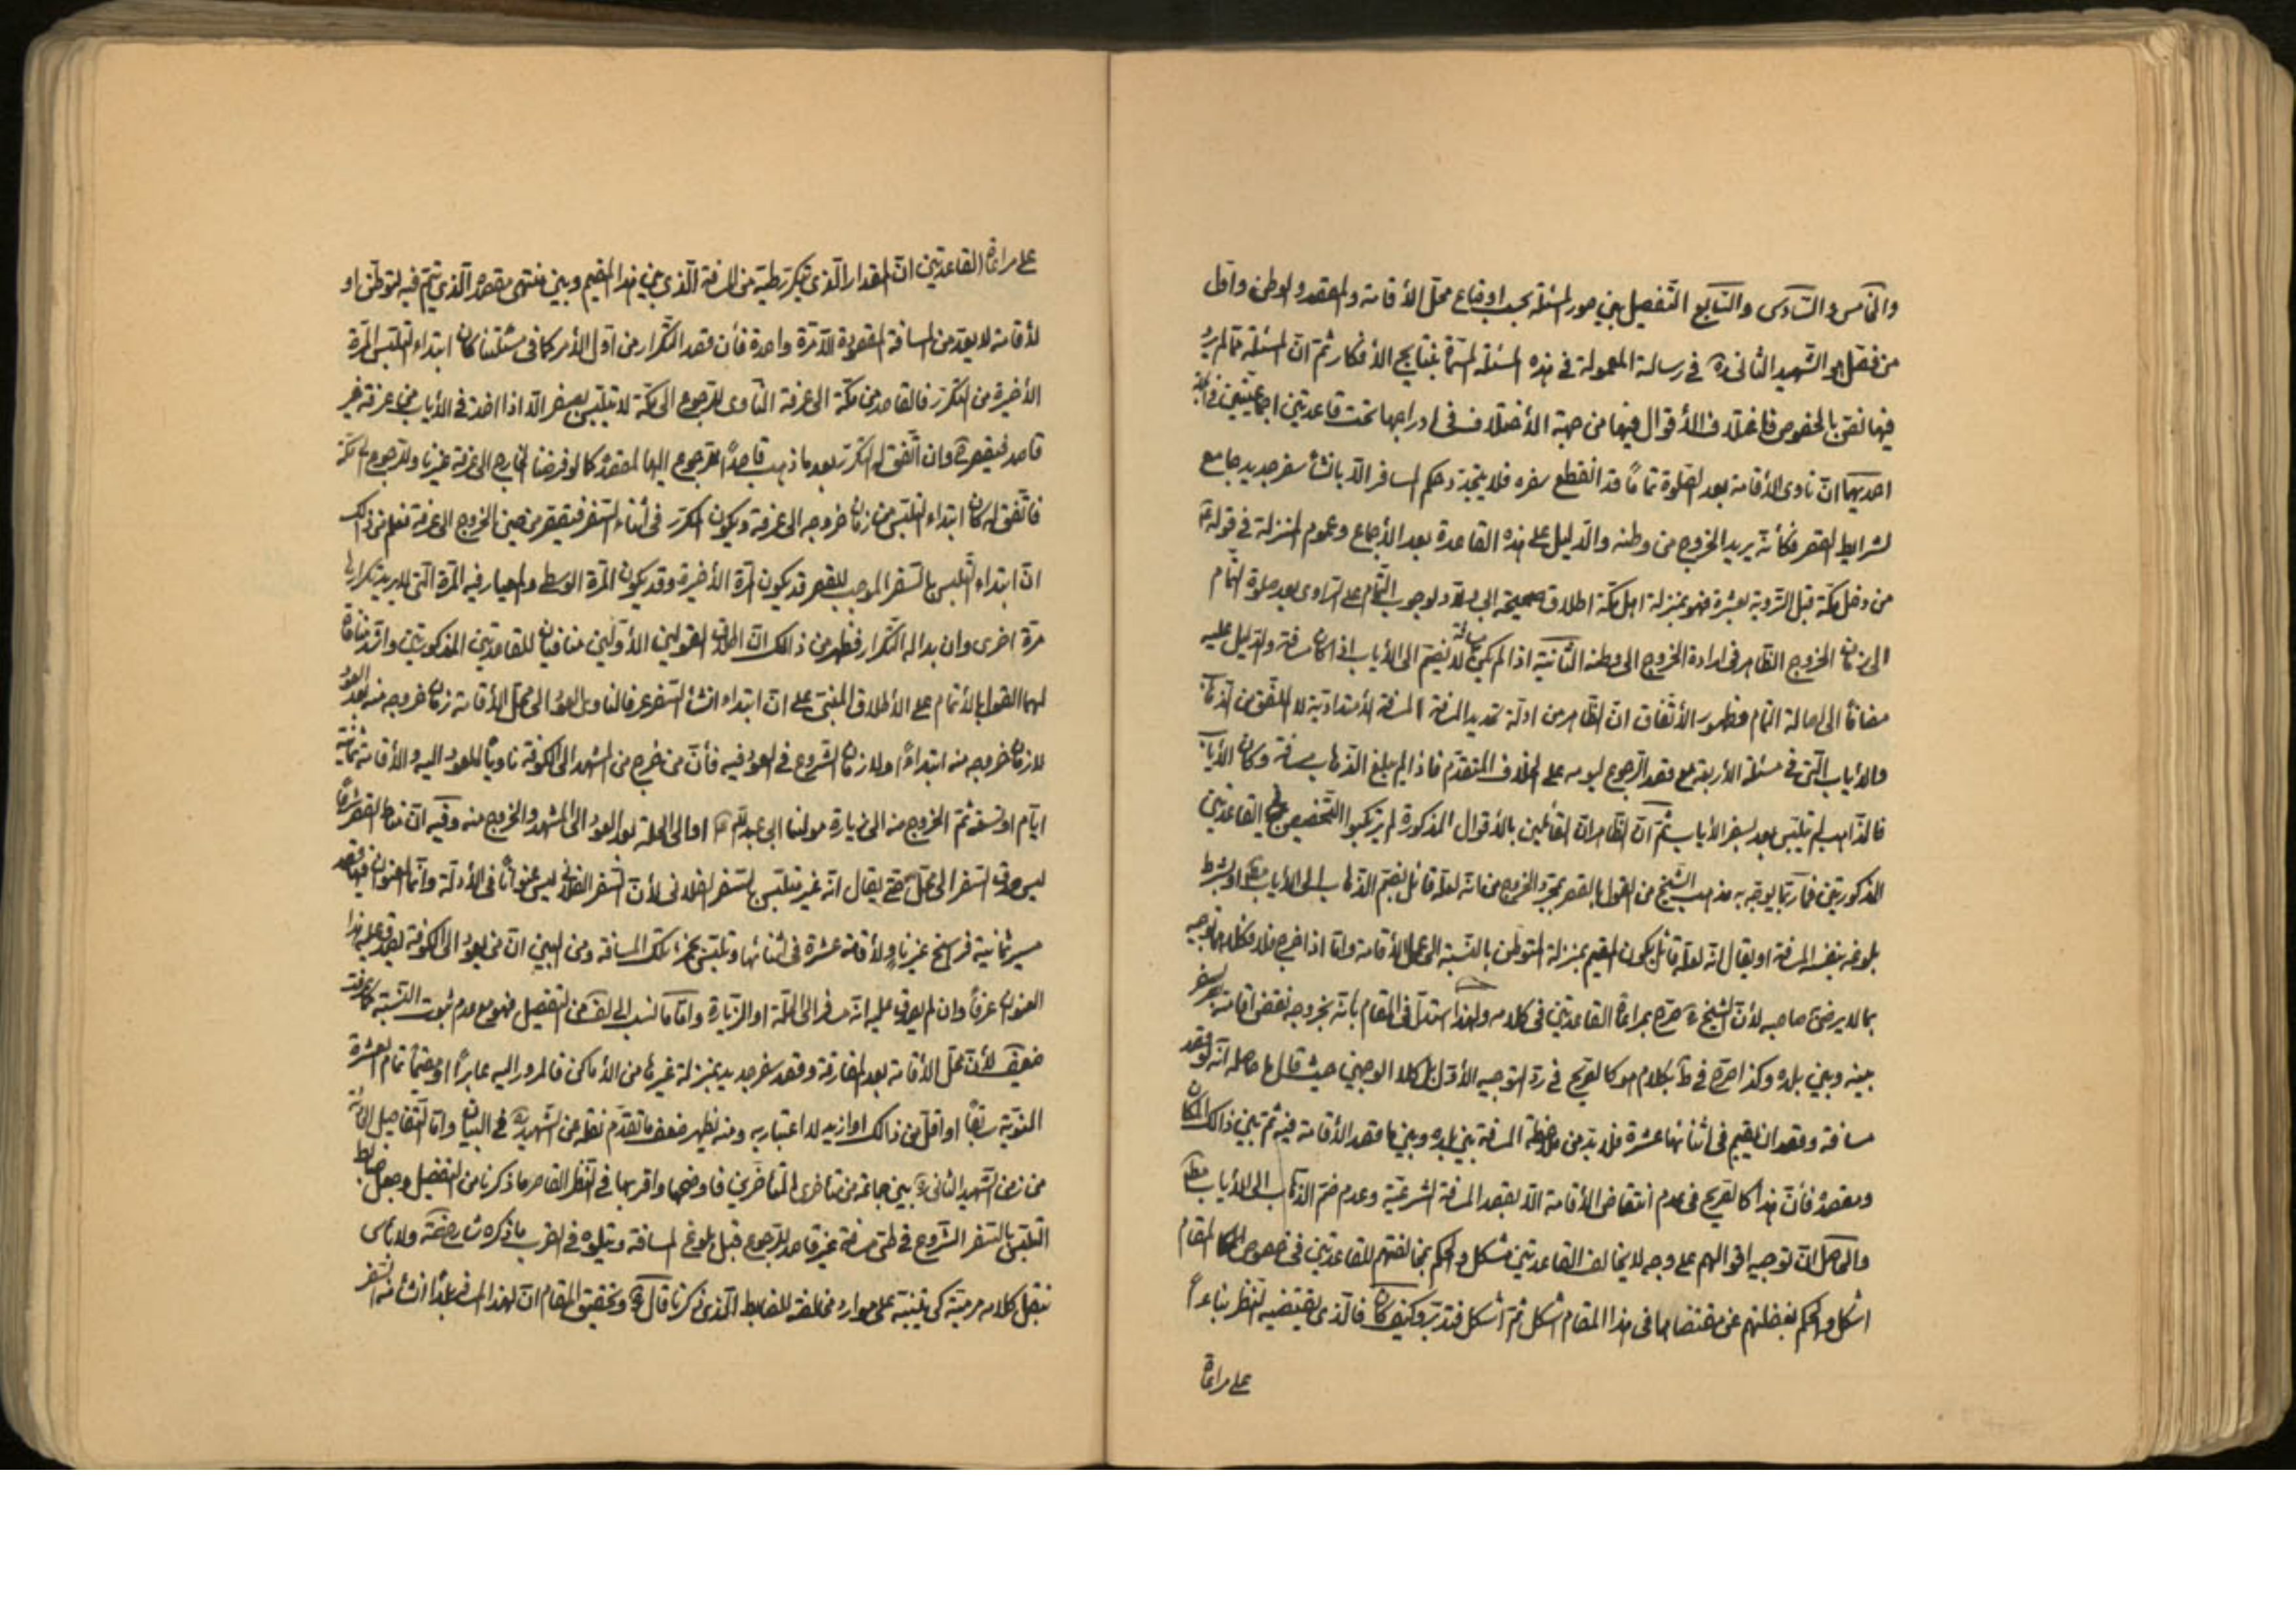 والخامس والسادس والسابع التفصيل بين صور المسئلة بحسب اوضاع محل الأقامة والمقصد والوطن واول
من فصل هو الشهيد الثانى ره في رسالته المعمولة في هذه المسئلة المسماة بنتايج الأفكار ثم ان المسئلة مما لم يرد
فيها نص بالخصوص فاختلاف الأقوال فيها من جهة الأختلاف في ادراجها تحت قاعدتين اجماعيتين في الجملة
احديهما ان ناوى الأقامة بعد الصلوة تماما قد انقطع سفره فلا يتجدد حكم المسافر الا بانشاء سفر جديد جامع
لشرايط القصر فكأنه يريد الخروج من وطنه والدليل على هذه القاعدة بعد الأجماع وعموم المنزلة في قوله ع
من دخل مكة قبل التروية بعشرة فهو بمنزلة اهل مكة اطلاق صحيحة ابى ولاد لوجوب التمام على الناوى بعد صلوة التمام
الى زمان الخروج الظاهر في ارادة الخروج الى وطنه الثانية اذا لم يكن مسافة لا يضم الى الأياب اذا كان مسافة والدليل عليه
مضافا الى اصالة التمام وظهور الأتفاق ان الظاهر من ادلة تحديد المسافة المسافة الأمتدادية لا الملفق من الذهاب
والأياب الا في مسئلة الأربعة مع قصد الرجوع ليومه على الخلاف المتقدم فاذا لم يبلغ الذهاب مسافة وكان الأياب
فالذاهب لم يتلبس بعد بسفر الأياب ثم ان الظاهر ان القائلين بالأقوال المذكورة لم يرتكبوا التخصيص في القاعدتين
المذكورتين فما ربما يوجه به مذهب الشيخ من القول بالقصر بمجرد الخروج من انه لعله قائل بضم الذهاب الى الأياب مطلقا او بشرط
بلوغه بنفسه المسافة او يقال انه لعله قائل بكون المقيم بمنزلة المتوطن بالنسبة الى محل الأقامة واما اذا خرج فلا فكلاهما توجيه
بما لا يرضى صاحبه لأن الشيخ ره صرح بمراعاة القاعدتين في كلامه ولهذا استدل في المقام بأنه بخروجه نقض اقامته بسفر
بينه وبين بلده وكذا صرح في ط بكلام هو كالصريح في رد التوجيه الأول بل كلا الوجهين حيث قال ما حاصله انه لو قصد
مسافة وقصد ان يقيم في اثنائها عشرة فلا بد من ملاحظة المسافة بين بلده وبين ما قصد الأقامة فيه ثم بين ذالك المكان
ومقصده فأن هذا كالصريح في عدم انتقاض الأقامة الا بقصد المسافة الشرعية وعدم ضم الذهاب الى الأياب مطلقا
والحاصل ان توجيه اقوالهم على وجه لا يخالف القاعدتين مشكل والحكم بمخالفتهم للقاعدتين في خصوص المقام
اشكل والحكم بغفلتهم عن مقتضاهما في هذا المقام اشكل ثم اشكل فتدبر وكيف كان فالذى يقتضيه النظر بناء
على مراعاة
على مراعاة القاعدتين ان المقدار الذى يتكرر طيه من المسافة الذى بين هذا المقيم وبين منتهى مقصده الذى يتم فيه لتوطن او
لأقامة لا يعد من المسافة المقصودة الا مرة واحدة فأن قصد التكرار من اول الأمر كما في مسئلتنا كان ابتداء التلبس المرة
الأخيرة من التكرر فالقاصد من مكة الى عرفة الناوى للرجوع الى مكة لا يتلبس بالسفر الا اذا اخذ في الأياب من عرفة غير
قاصد فيقصر ح وان اتفق له التكرر بعد ما ذهب قاصدا للرجوع اليها لمقصده كما لو فرضنا الخارج الى عرفة غير ناو للرجوع الى مكة
فاتفق له كان ابتداء التلبس من زمان خروجه الى عرفة ويكون التكرر في اثناء السفر فيقصر من حين الخروج الى عرفة فعلم من ذالك
ان ابتداء التلبس بالسفر الموجب للقصر قد يكون المرة الأخيرة وقد يكون المرة الوسطى والمعيار فيه المرة التى لا يريد تكرارها
مرة اخرى وان بدا له التكرار فظهر من ذالك ان اطلاق القولين الأولين منافيان للقاعدتين المذكورتين واشد منافاة
لهما القول بالأتمام على الأطلاق المبتنى على ان ابتداء انشاء السفر عرفا لناوى العود الى محل الأقامة زمان خروجه منه بعد العود
لا زمان خروجه منه ابتداء ولا زمان الشروع في العود فيه فأن من خرج من المشهد الى الكوفة ناويا للعود اليه والأقامة ثمانية
ايام او تسعة ثم الخروج منه الى زيارة مولينا ابى عبد الله ع او الى الحلة بعد العود الى المشهد والخروج منه وفيه ان مناط القصر شرعا
ليس صدق السفر الى محل حتى يقال انه غير متلبس بالسفر الفلانى لأن السفر الفلانى ليس عنوانا في الأدلة وانما العنوان فيها قصد
مسير ثمانية فراسخ غير ناو لأقامة عشرة في اثنائها وتلبس بجزء تلك المسافة ومن البين ان من يعود الى الكوفة يصدق عليه هذا
العنوان عرفا وان لم يصدق عليه انه مسافر الى الحلة او الزيارة واما ما نسب الى لف من التفصيل فهو مع عدم ثبوت النسبة كما عرفت
ضعيف لأن محل الأقامة بعد المفارقة وقصد سفر جديد بمنزلة غيرها من الأماكن فالمرور اليه عابرا او مقيما تمام العشرة
المنوية سابقا او اقل من ذالك او ازيد لا اعتبار به ومنه يظهر ضعف ما تقدم نقله من الشهيد ره في البيان واما التفاصيل الحادثة
من زمن الشهيد الثانى ره بين جماعة من متأخرى المتأخرين فاوضحها واقربها في النظر القاصر ما ذكرنا من التفصيل وجعل ضابط
التلبس بالسفر الشروع في طى مسافة غير قاصد للرجوع قبل بلوغ المسافة ويتلوه في القرب ما ذكره شارح ضه ولا بأس
بنقل كلامه مرتبة كى يتنبه على موارد مخالفة للضابط الذى ذكرنا قال ره وتحقيق المقام ان لهذا المسافر بلدا انشأ منه السفر